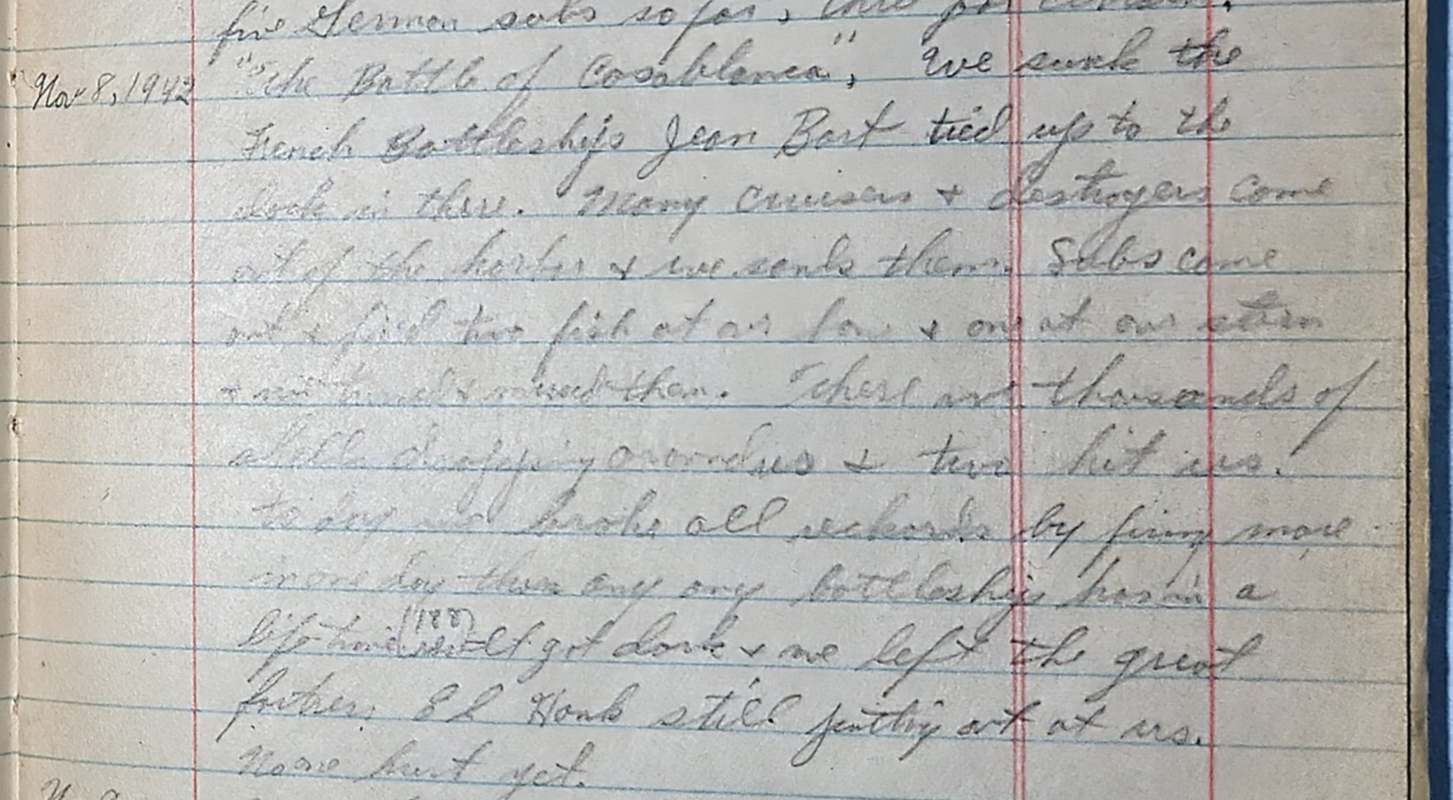 five German subs so far,
Nov 8, 1942 "The Battle of Casablanca", We sunk the
French Battleship Jean Bart tied up to the
dock in there. Many cruisers & destroyers come
out of the harbor & we sank them. Subs came
out & fired two fish at our bow & one at our stern
& we turned & missed them. There are thousands of
shells dropping around us & two hit us.
today we broke all reckords by firing more
in one day than any any battleship has in a
life time (188) It got dark & we left the great
fortress El Hank still putting out at us.
No one hurt yet.